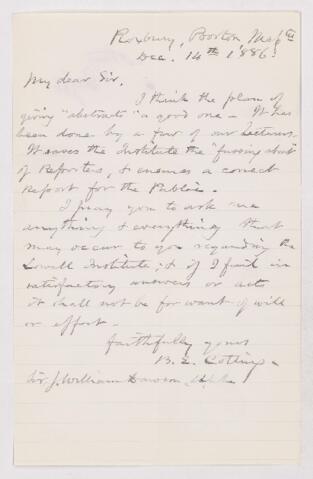 Roxbury, Boston Mass
Dec. 14th 1886.
My dear Sir,
I think the plan of
giving "abstracts" a good one — It has
been done by a few of our lecturers.
It saves the Institute the "fussing about"
of Reporters, & ensures a correct
Report for the Public.
I pray you to ask me
anything & everything that
may occur to you regarding the
Lowell Institute; & if I fail in
satisfactory answers or act
it shall not be for want of will
or effort.
Faithfully yours
B. E. Cotting
Sir J. William Dawson